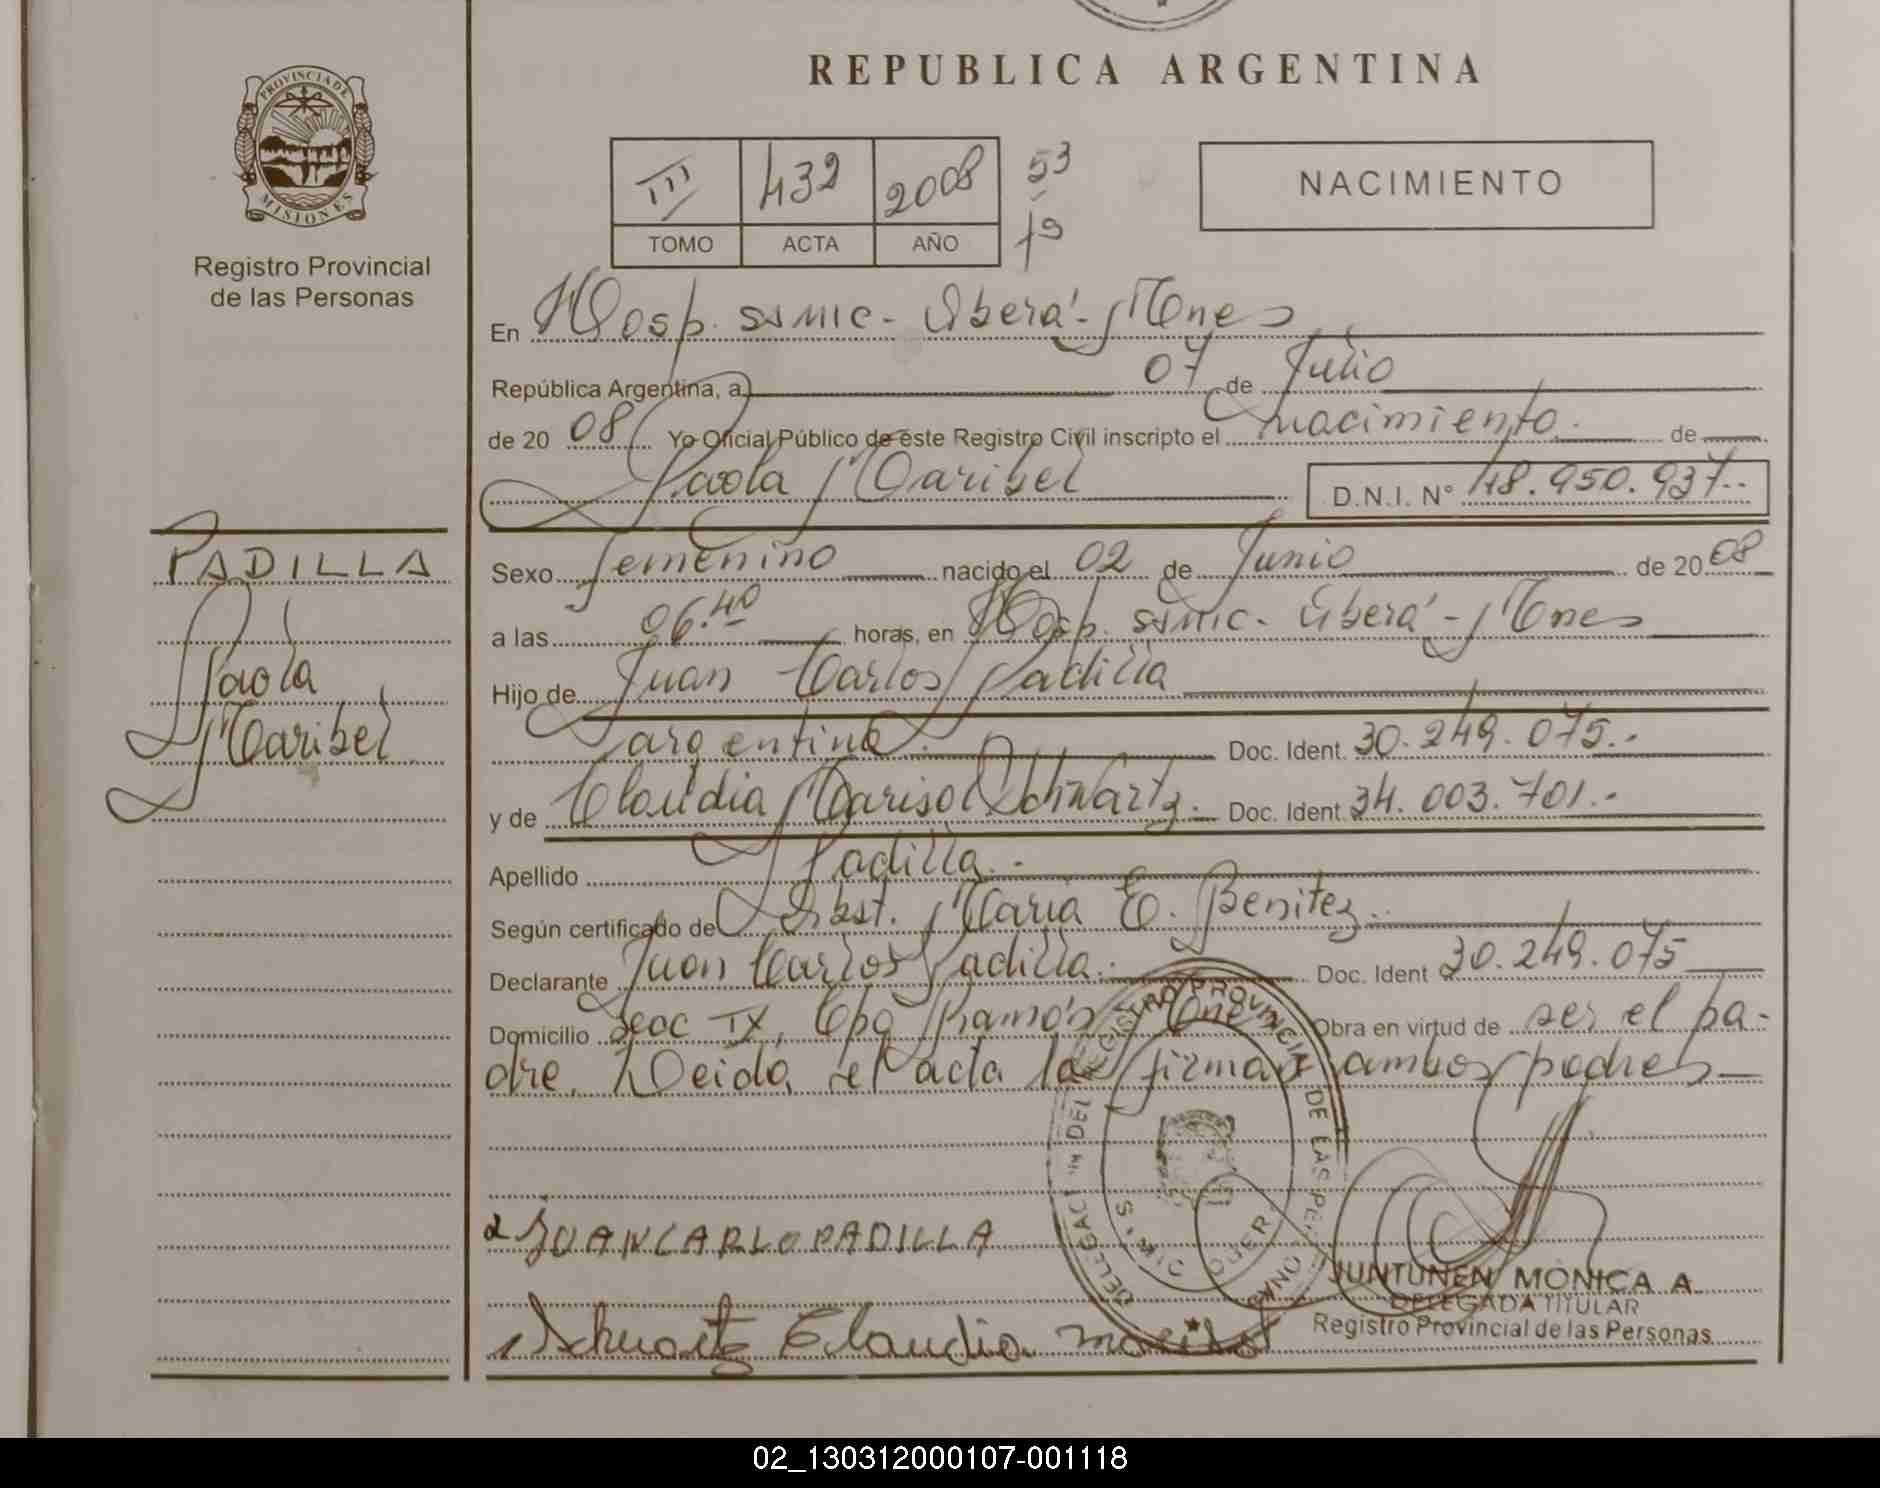 REPUBLICA ARGENTINA
PROVINCIA DE MISIONES
Registro Provincial
de las Personas
III 432 2008 53
TOMO ACTA AÑO 19
NACIMIENTO
En Hosp. SAMIC - Oberá - Mnes
República Argentina, a 07 de Julio
de 2008 Yo Oficial Público de este Registro Civil inscripto el nacimiento. de
Paola Maribel D.N.I. N° 48.950.937.-
PADILLA
Paola
Maribel
Sexo femenino nacido el 02 de Junio de 2008
a las 06.40 horas, en Hosp. SAMIC - Oberá - Mnes
Hijo de Juan Carlos Padilla
argentino. Doc. Ident. 30.249.075.-
y de Claudia Marisol Schwartz. Doc. Ident. 34.003.701.-
Apellido Padilla.-
Según certificado de Obst. Maria E. Benitez.
Declarante Juan Carlos Padilla. Doc. Ident 30.249.075
Domicilio Secc IX, Cpo Ramón Mnes Obra en virtud de ser el pa-
dre. Leida el acta la firman ambos padres
JUANCARLOPADILLA
Schwartz Claudia marisol
REGISTRO PROVINCIAL DE LAS PERSONAS
JUNTUNEN MONICA A.
DELEGADA TITULAR
Registro Provincial de las Personas
02_130312000107-001118